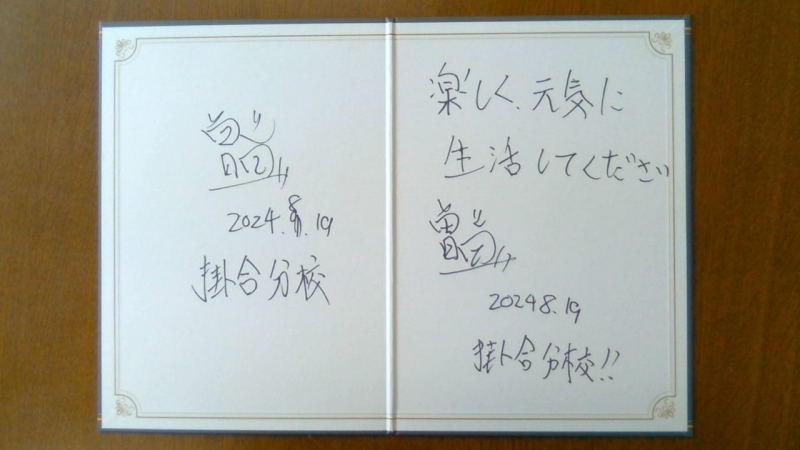 2024.8.19
掛合分校
楽しく、元気に
生活してください
2024 8.19
掛合分校!!